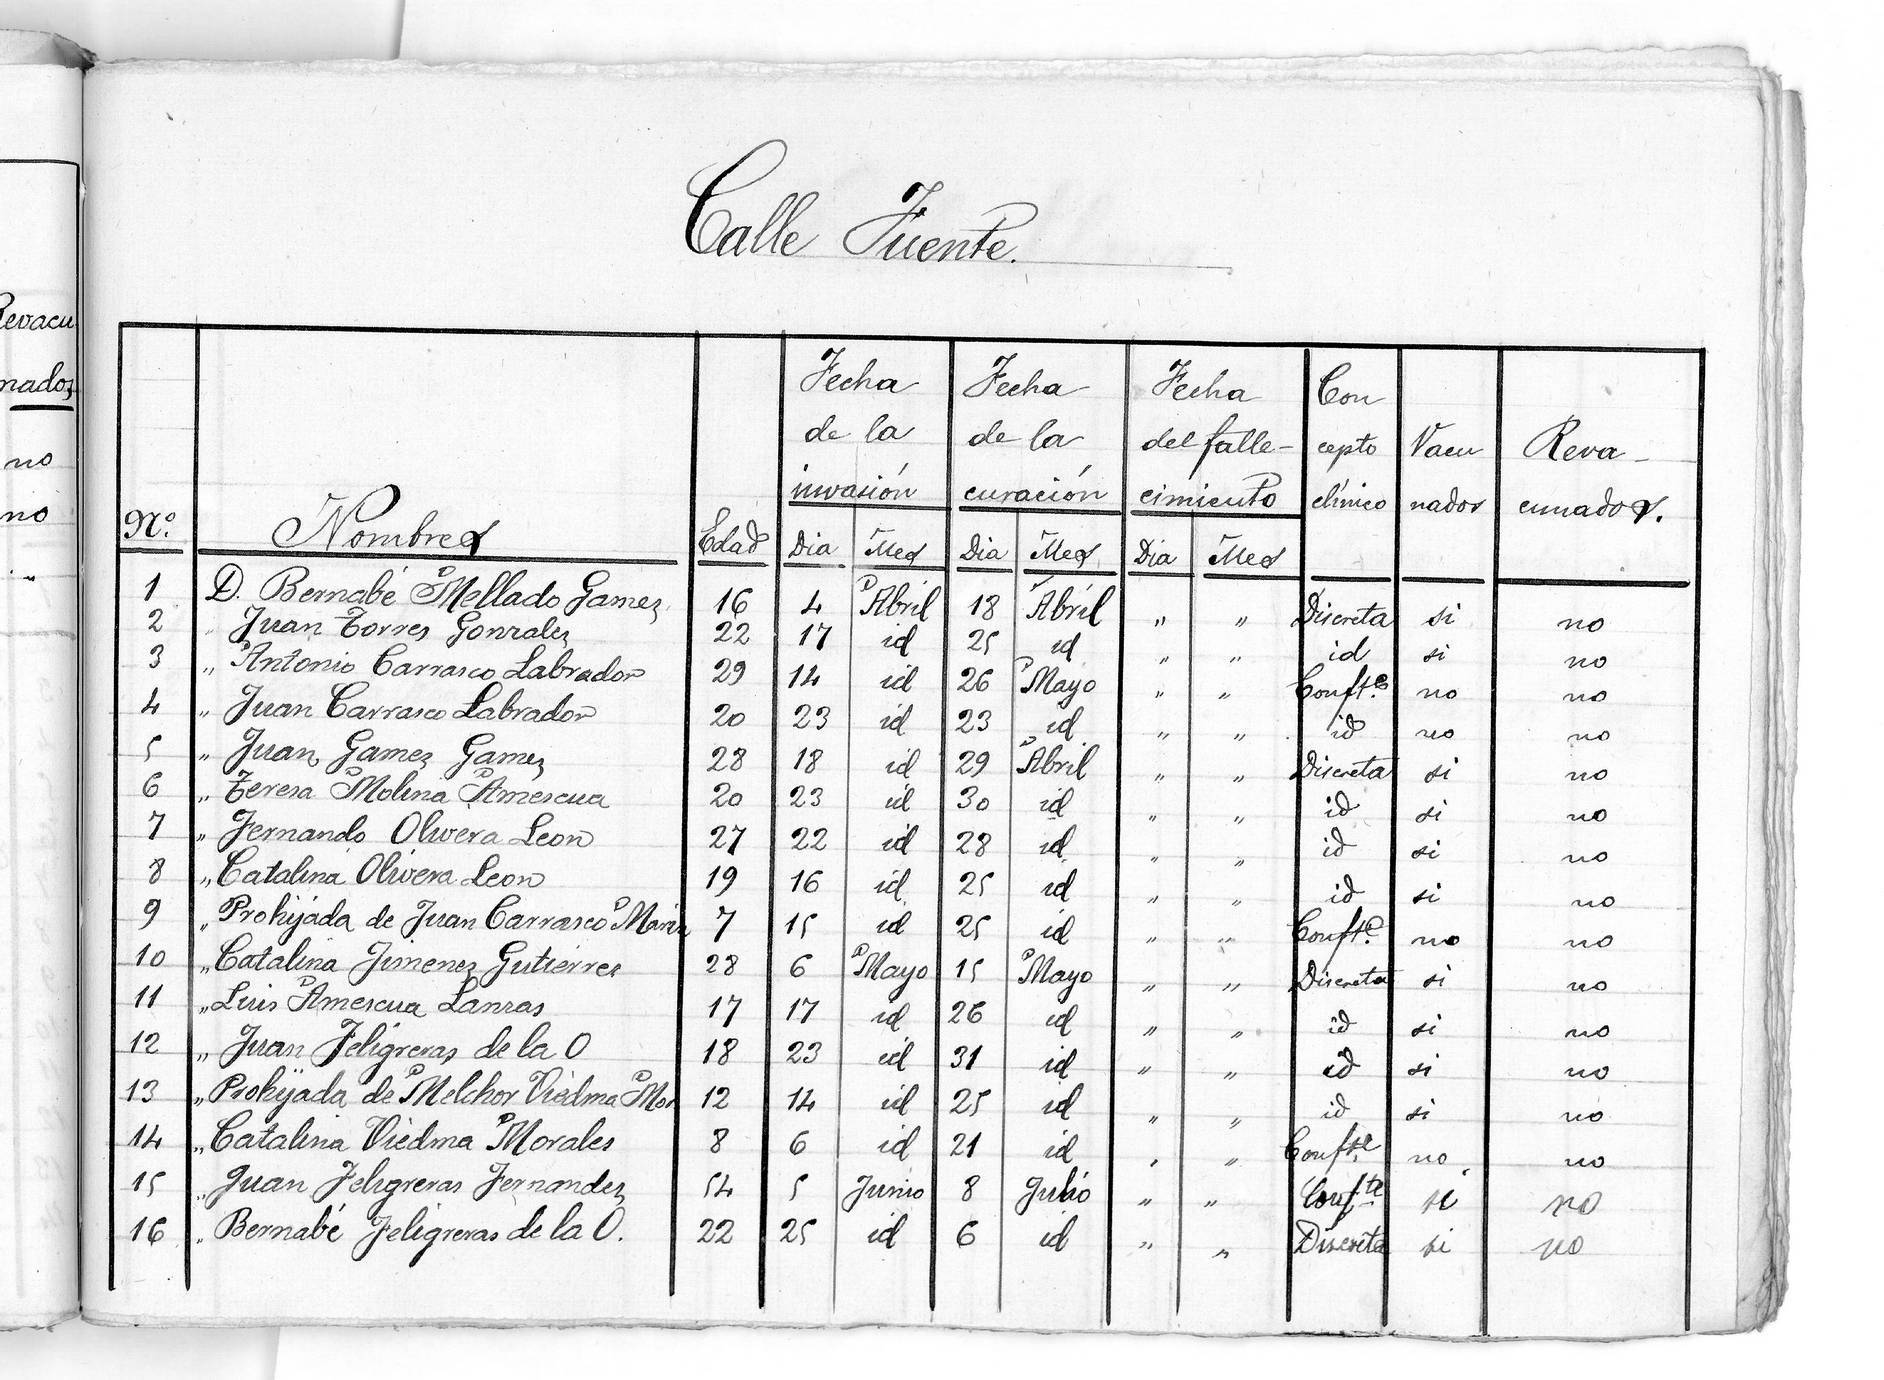 Revacu
nados
no
no
"
Calle Fuente.
Nº Nombres Edad Fecha de la invasión Fecha de la curación Fecha del falle-cimiento Con cepto clínico Vacu nados Reva-cunados.
Dia Mes Dia Mes Dia Mes
1 D. Bernabé Mellado Gamez 16 4 Abril 18 Abril " " Discreta si no
2 " Juan Torres Gonzalez 22 17 id 25 id " " id si no
3 " Antonio Carrasco Labrador 29 14 id 26 Mayo " " Confte no no
4 " Juan Carrasco Labrador 20 23 id 23 id " " id no no
5 " Juan Gamez Gamez 28 18 id 29 Abril " " Discreta si no
6 " Teresa Molina Amescua 20 23 id 30 id " " id si no
7 " Fernando Olivera Leon 27 22 id 28 id " " id si no
8 " Catalina Olivera Leon 19 16 id 25 id " " id si no
9 " Prohijada de Juan Carrasco Marin 7 15 id 25 id " " Confte no no
10 " Catalina Jimenez Gutierrez 28 6 Mayo 15 Mayo " " Discreta si no
11 " Luis Amescua Lanzas 17 17 id 26 id " " id si no
12 " Juan Feligreras de la O 18 23 id 31 id " " id si no
13 " Prohijada de Melchor Viedma Mor 12 14 id 25 id " " id si no
14 " Catalina Viedma Morales 8 6 id 21 id " " Confte no no
15 " Juan Feligreras Fernandez 54 5 Junio 8 Julio " " Confte si no
16 " Bernabé Feligreras de la O. 22 25 id 6 id " " Discreta si no